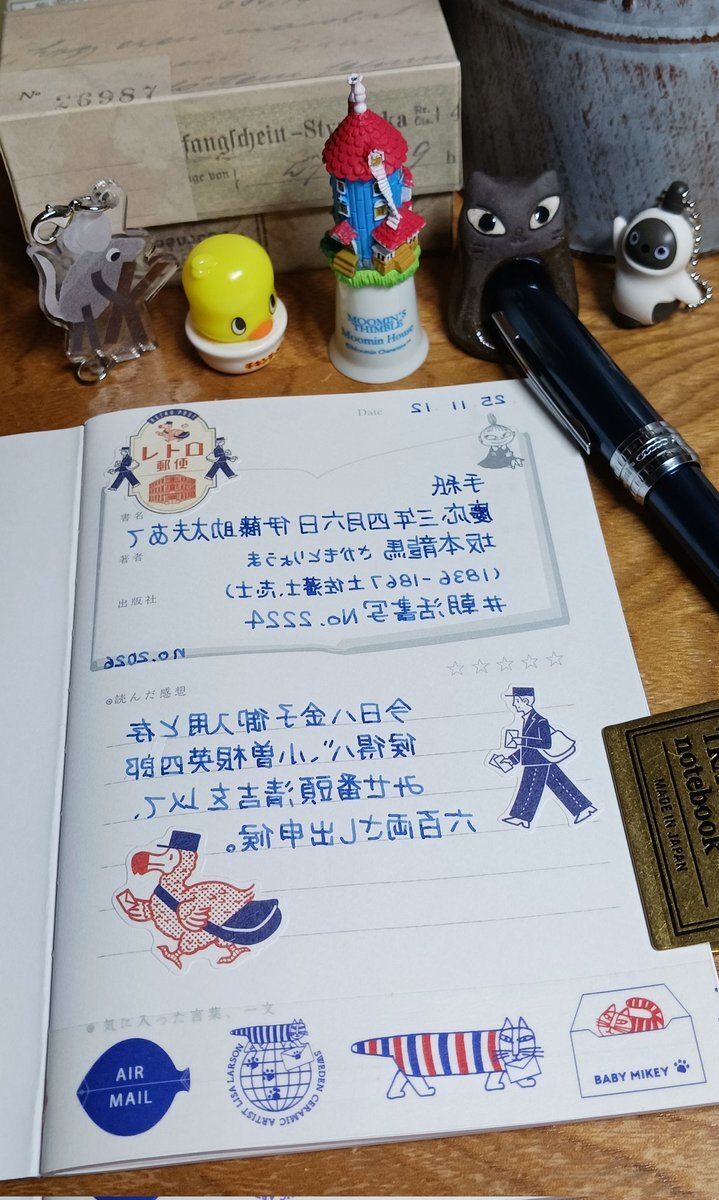 No 26987
MOOMIN'S
THIMBLE
Moomin House
©Moomin Characters™
Date
25.11.12
RETRO POST
レトロ
郵便
手紙
書名
慶応三年四月六日伊藤助太夫あて
著者
坂本龍馬 さかもとりょうま
(1836-1867土佐藩士、志士)
出版社
#朝活書写 No.2224
no.2026
☆☆☆☆☆
読んだ感想
今日ハ金子御入用と存
候得バ、小曽根英四郎
みせ番頭清吉を以て、
六百両さし出申候。
notebook
MADE IN JAPAN
気に入った言葉、一文
AIR
MAIL
SWEDEN CERAMIC ARTIST LISA LARSON
BABY MIKEY